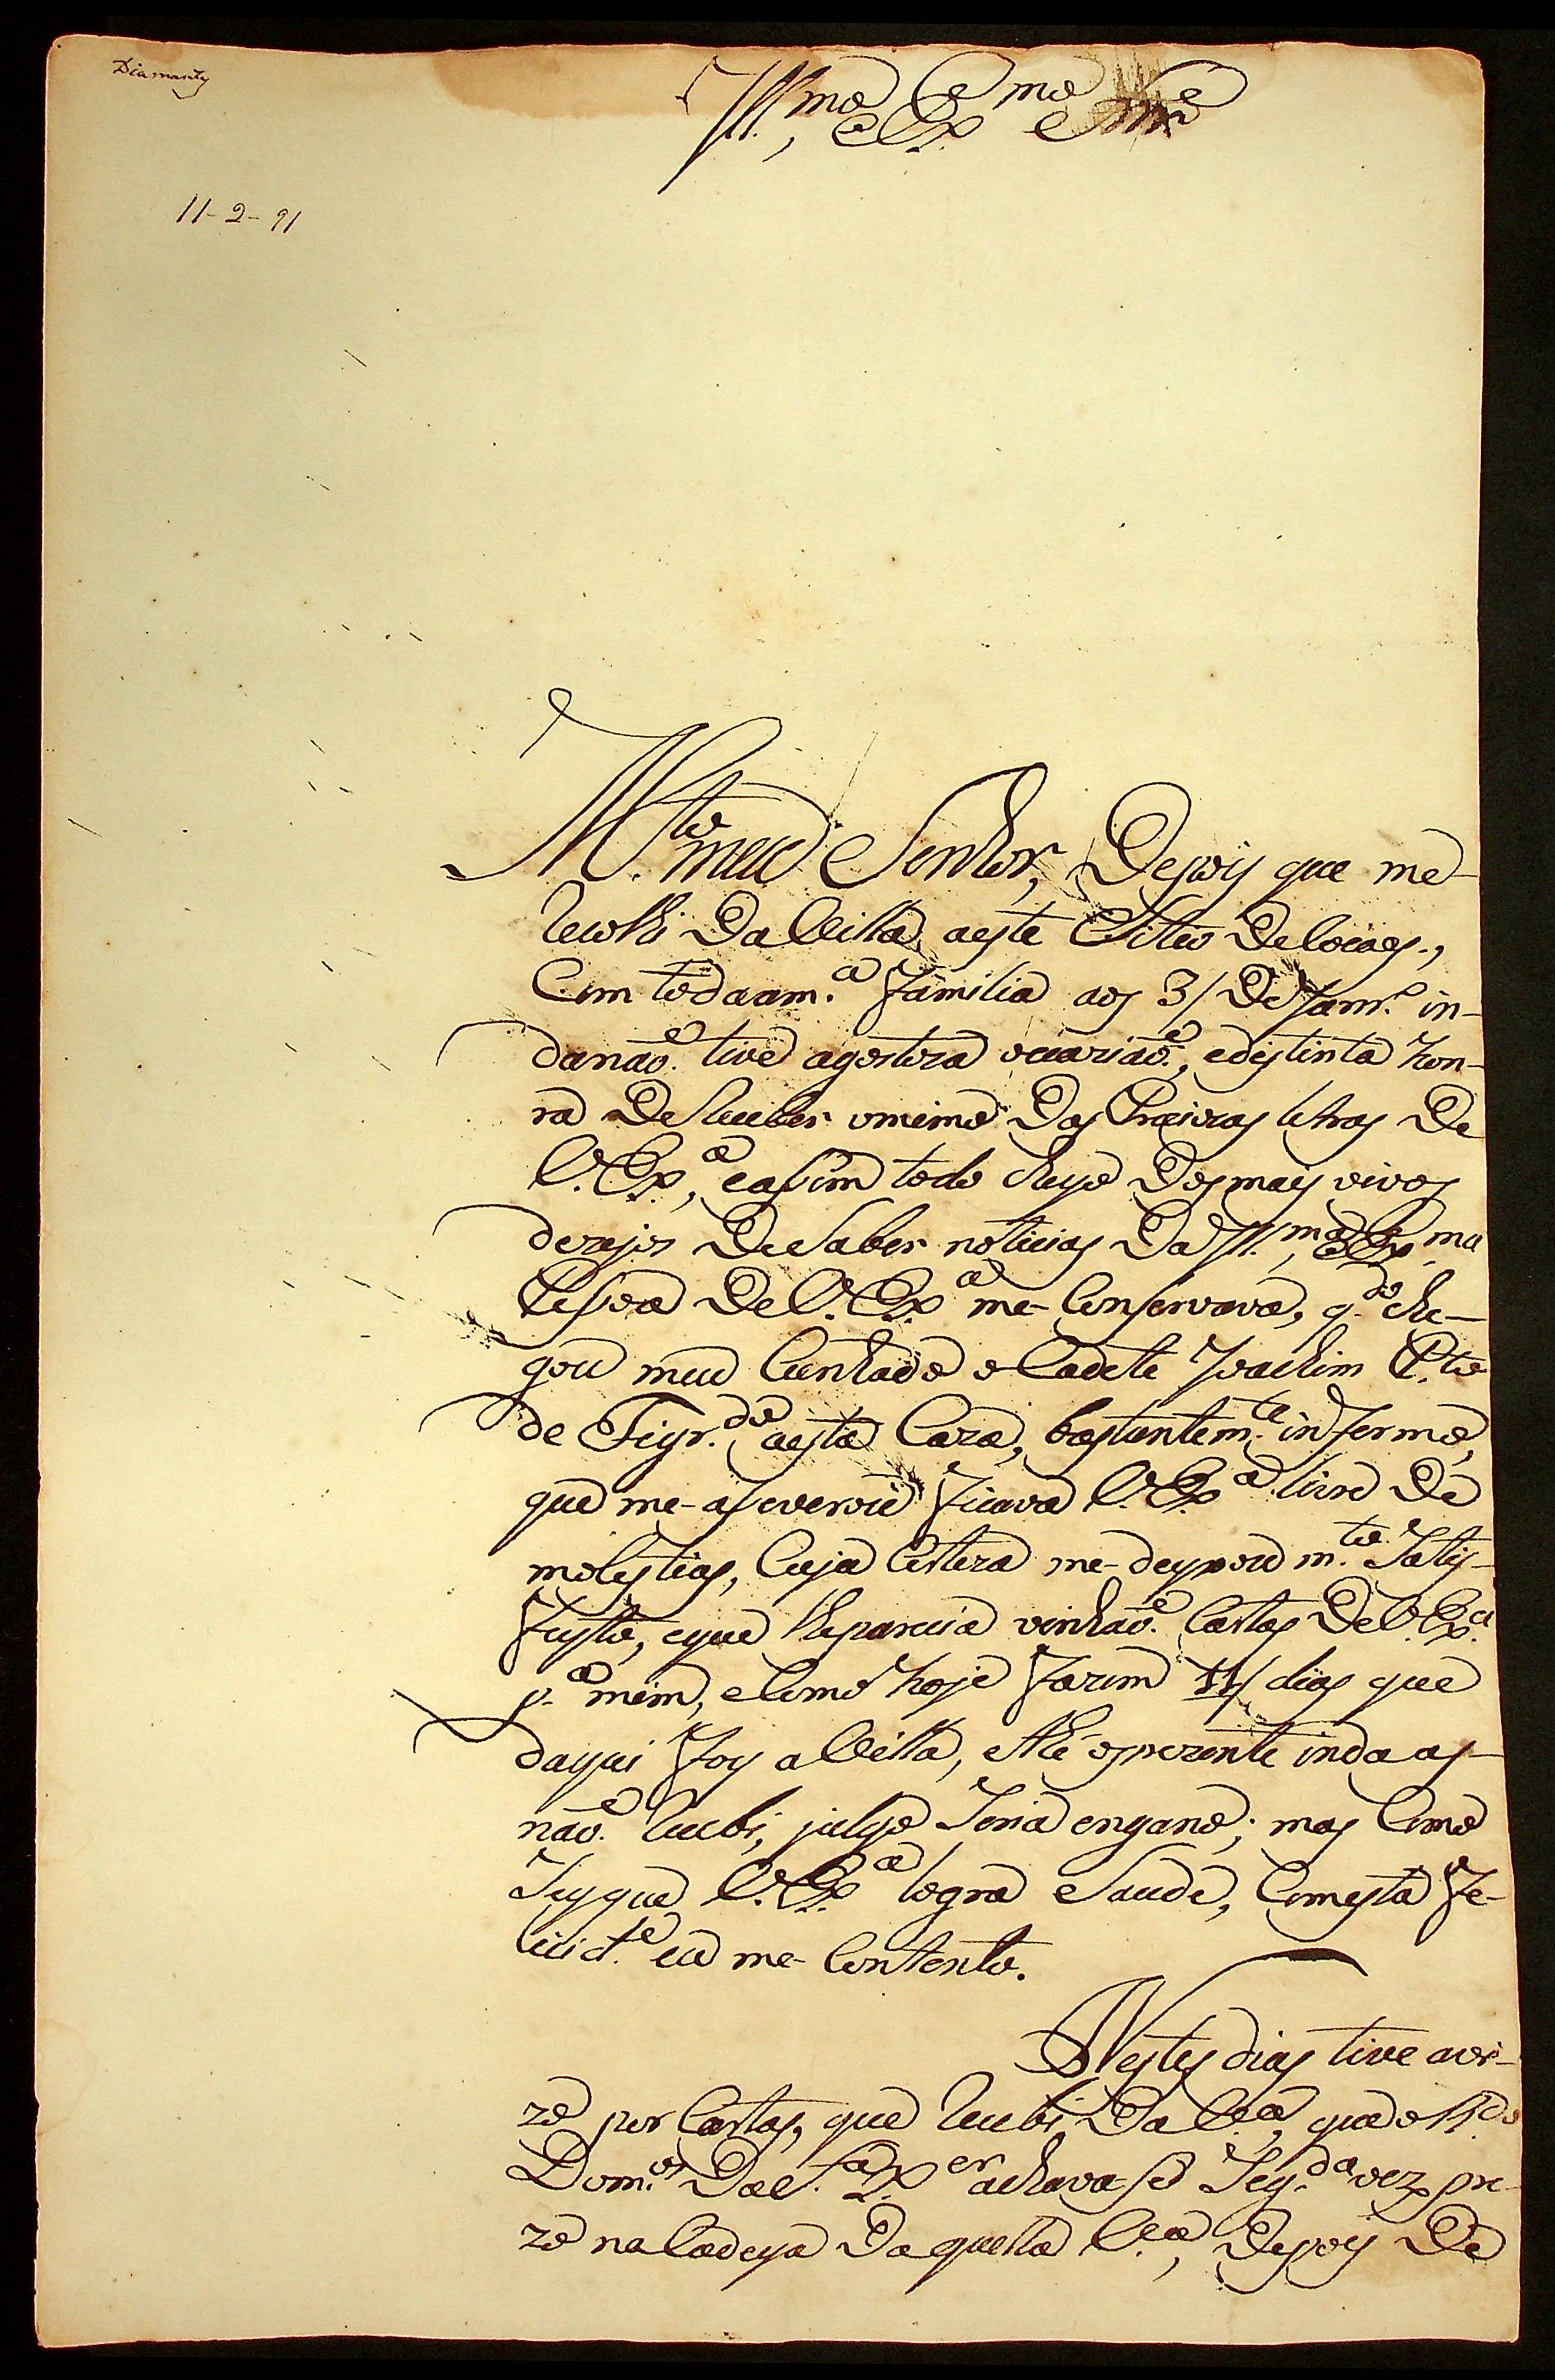 Diamantz
Ill.mo, e Ex.mo Snr.e
11-2-91
M.to meu Senhor, Depois que me-
recolhi Da Villa, aeste Sitio De
Com todaam.a Familia aos 3/ De Janr.o in-
danaõ. tive agostoza , edistinta hon-
ra De receber omimo Das Letras De
V. Ex.a, eassim todo cheyo Dosmais vivos
dezejos DeSaber noticias Da Ill.ma, e Ex.ma
Pessoa De V. Ex.a me-Conservava, q.do che-
gou meu Cunhado o Cadete Joachim P.to
de Figr.do aesta Caza, bastantem.te infermo,
que me-asseverou Ficava V. Ex.a livre De
molestias, Cuja Certeza me-deyxou m.to Satis-
Feyto, eque lheparecia vinhaõ. Cartas De V. Ex.a
p.a mim, eComo hoje Fazem 11/ dias que
daqui Foy a Villa, eAté oprezente indaas-
naõ. recebi, julgo Seria engano; mas Como
Seyque V. Ex.a logra Saude, Comesta Fe-
licid.e eu me-Contento.
Nestes dias tive avi-
zo por Cartas, que recebi Da V.a, que o R.do
Dom.os Da S.a X.er achava-se Seg.da vez pre-
zo na Cadeya Daquella V.a, Depois De